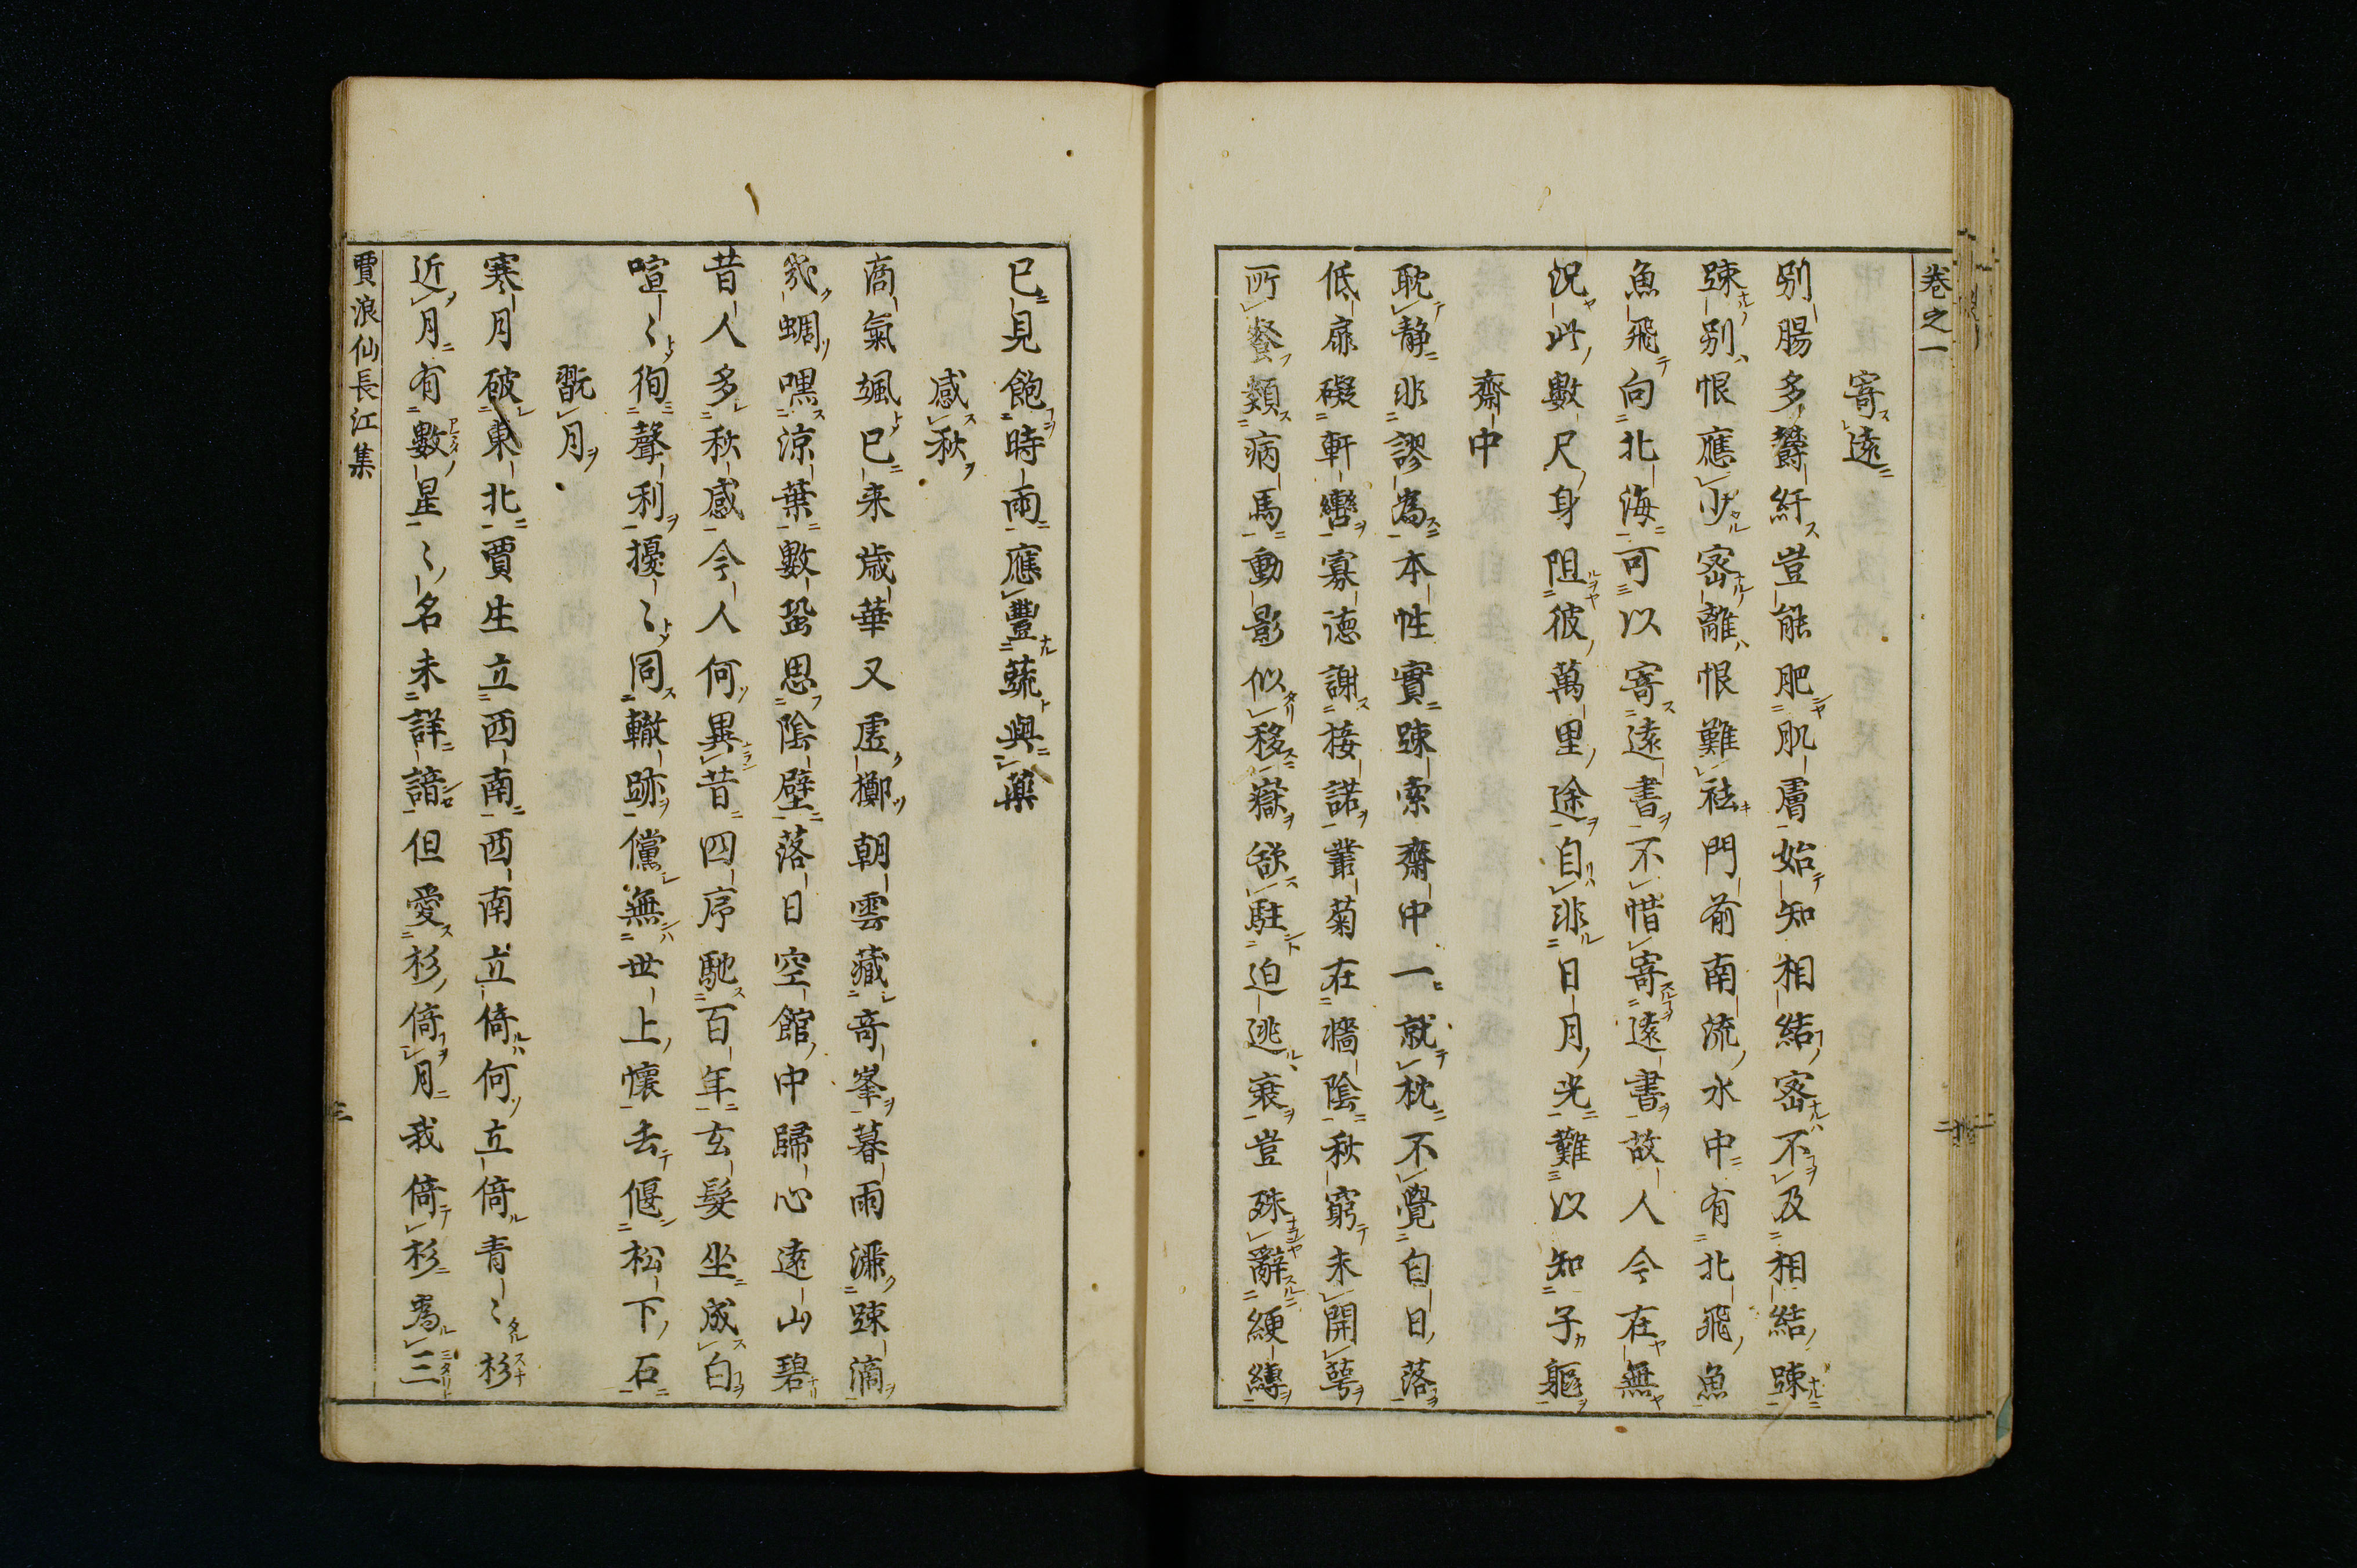 卷之一
寄遠
別腸多鬱紆豈能肥肌膚始知相結密不及相結踈
踈別恨應少密離恨難袪門前南流水中有北飛魚
魚飛向北海可以寄遠書不惜寄遠書故人今在無
況此數尺身阻彼萬里途自非日月光難以知子軀
齋中
耽靜非謬為本性實踈索齋中一就枕不覺白日落
低扉礙軒轡寡德謝接諾叢菊在牆陰秋窮未開萼
所餐類病馬動影似移嶽欲駐迫逃衰豈殊辭綆縛
已見飽時雨應豐蔬與藥
感秋
商氣颯已来歲華又虛擲朝雲藏奇峯暮雨灑踈滴
幾蜩嘿涼葉數蛩思陰壁落日空館中歸心遠山碧
昔人多秋感今人何異昔四序馳百年玄髮坐成白
喧〻徇聲利擾〻同轍跡儻無世上懷去偃松下石
翫月
寒月破東北賈生立西南西南立倚何立倚青〻杉
近月有數星〻名未詳諳但愛杉倚月我倚杉為三
賈浪仙長江集
三